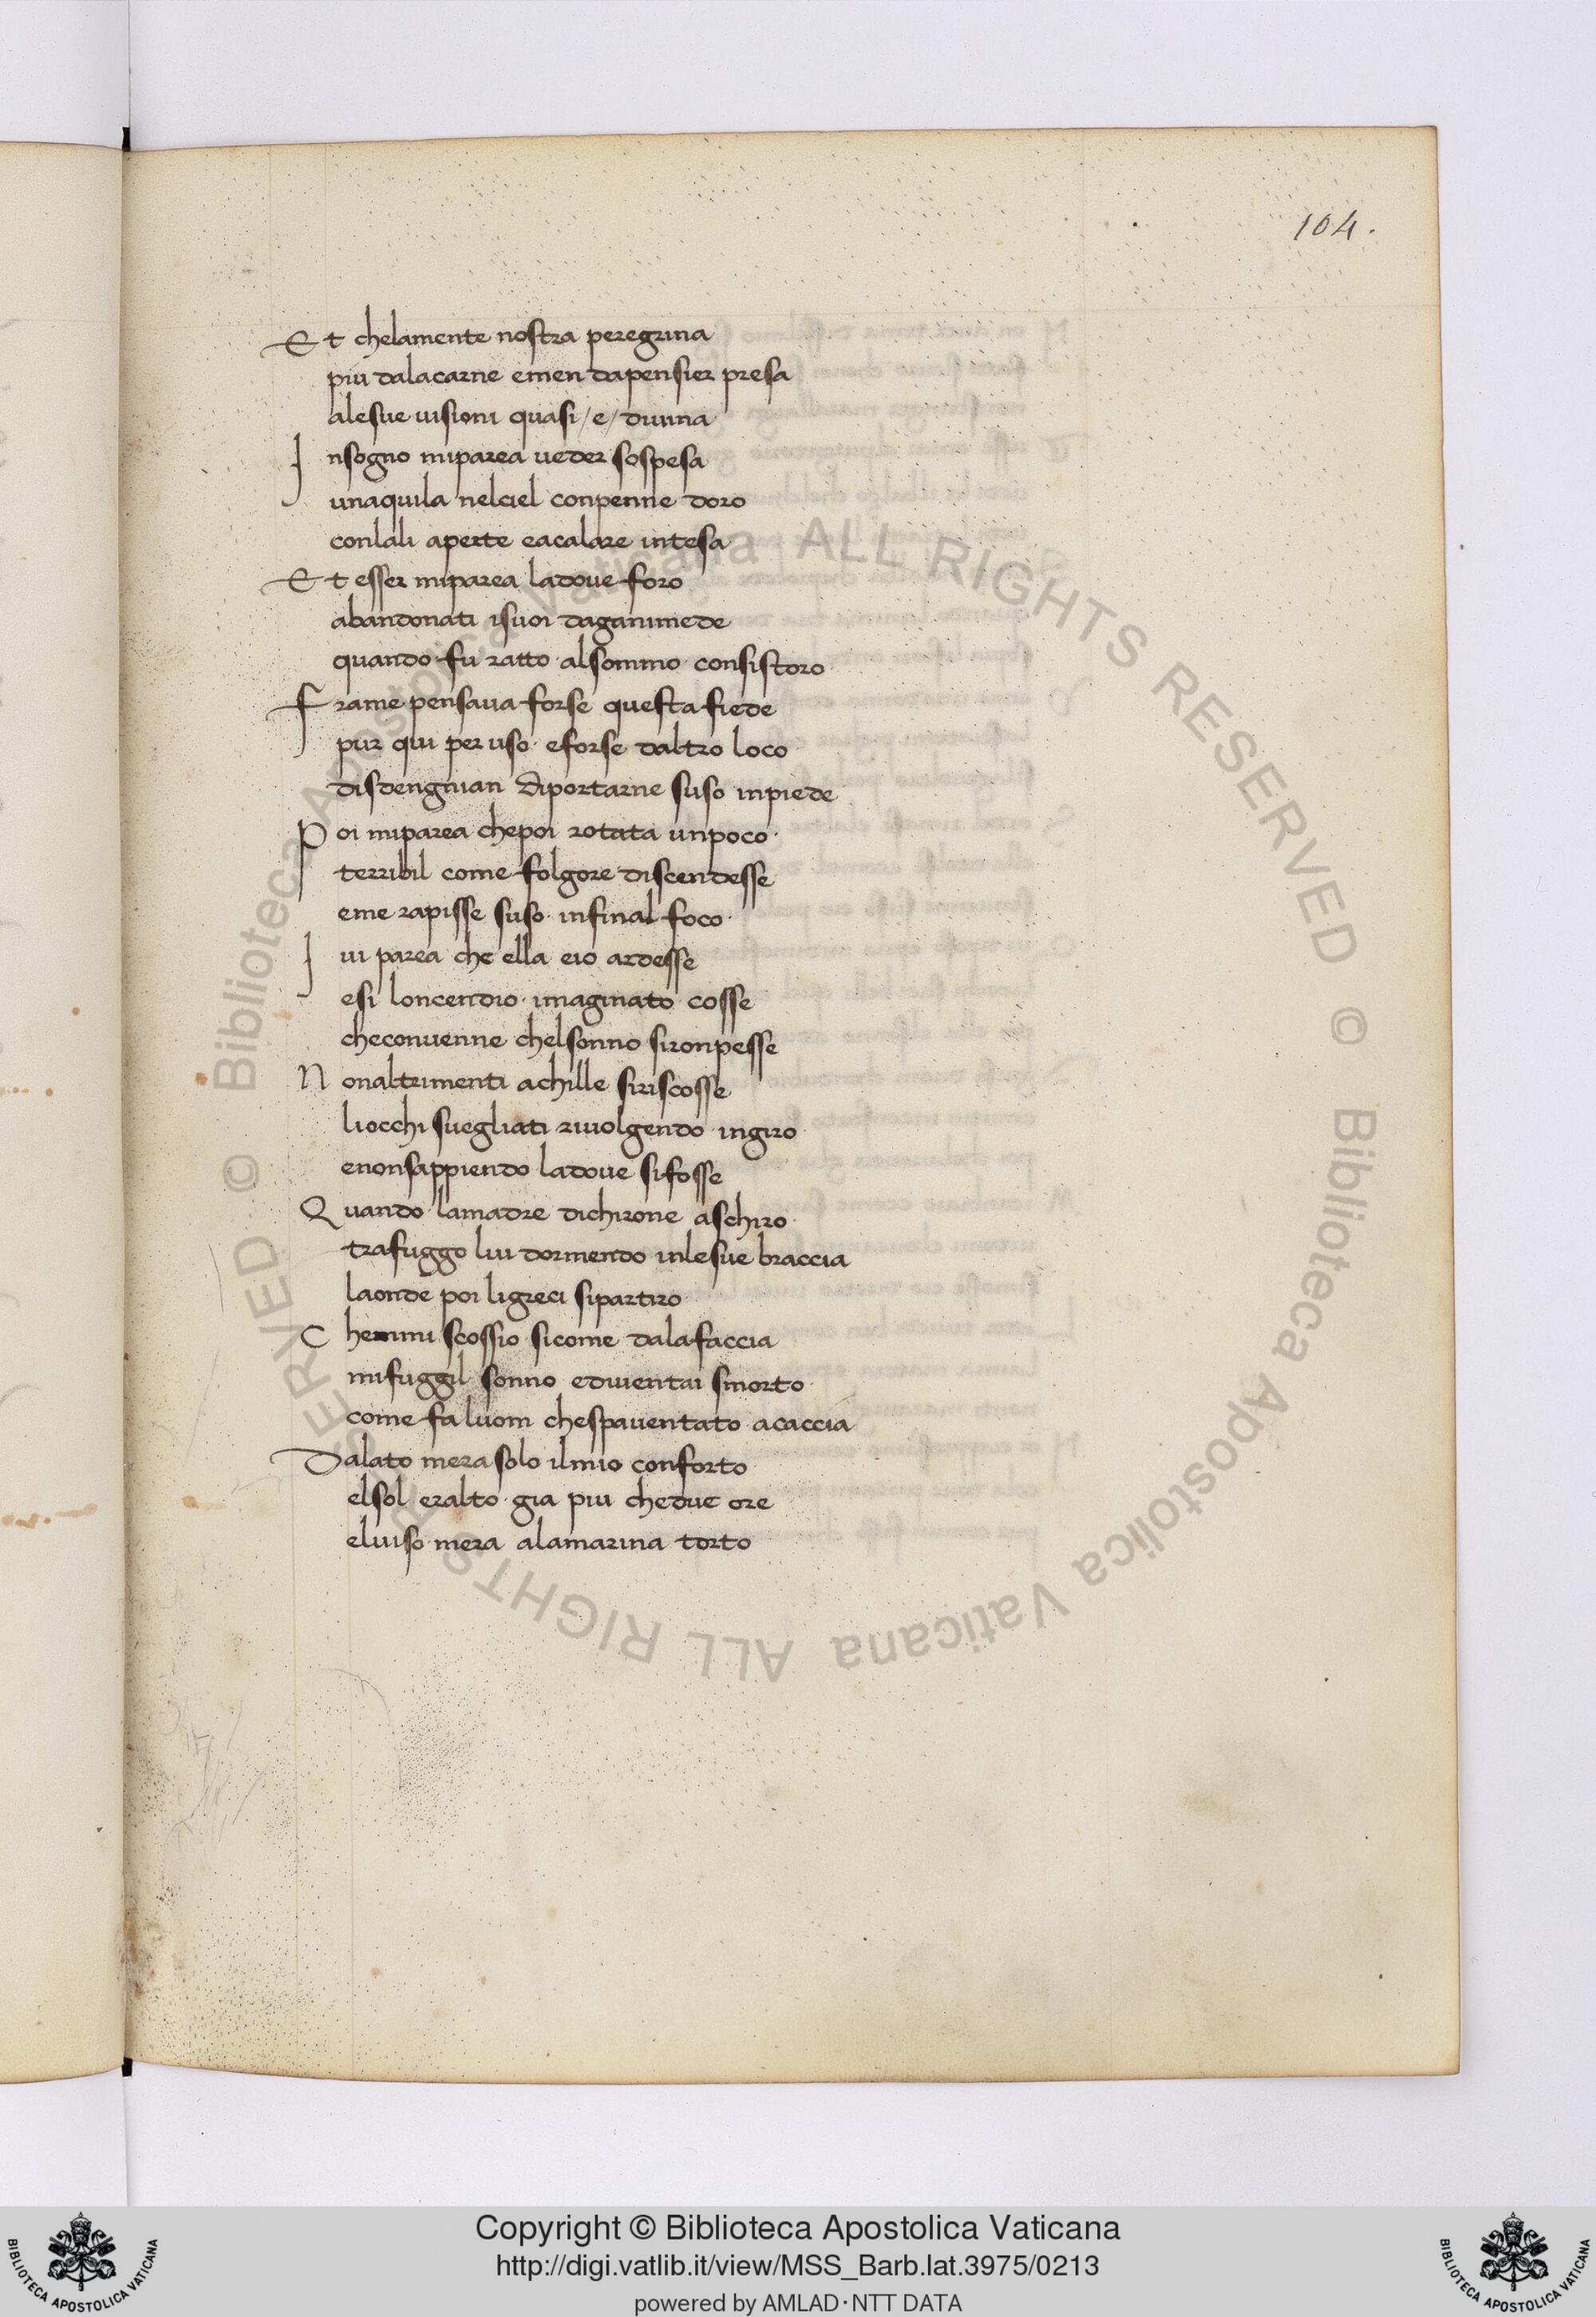 104.
Et chelamente nostra peregrina
piu dalacarne emen dapensier presa
alesue uisioni quasi /e/ diuina
Insogno miparea ueder sospesa
unaquila nelciel conpenne doro
conlali aperte eacalare intesa
Et esser miparea ladoue foro
abandonati isuoi daganimede
quando fu ratto alsommo consistoro
Frame pensaua forse questa fiede
pur qui per uso eforse daltro loco
disdengnian diportarne suso inpiede
Poi miparea chepoi rotata unpoco
terribil come folgore discendesse
eme rapisse suso infinal foco
Iui parea che ella eio ardesse
esi loncendio imaginato cosse
checonuenne chelsonno sironpesse
Nonaltrimenti achille siriscosse
liocchi suegliati riuolgendo ingiro
enonsappiendo ladoue sifosse
Quando lamadre dichirone aschiro
trafuggo lui dormendo inlesue braccia
laonde poi ligreci sipartiro
Chemmi scossio sicome dalafaccia
mifuggil sonno ediuentai smorto
come fa luom chespauentato acaccia
Dalato mera solo ilmio conforto
elsol eralto gia piu chedue ore
eluiso mera alamarina torto
© Biblioteca Apostolica Vaticana ALL RIGHTS RESERVED © Biblioteca Apostolica Vaticana ALL RIGHTS RESERVED
Copyright © Biblioteca Apostolica Vaticana
http://digi.vatlib.it/view/MSS_Barb.lat.3975/0213
powered by AMLAD·NTT DATA
BIBLIOTECA APOSTOLICA VATICANA
BIBLIOTECA APOSTOLICA VATICANA